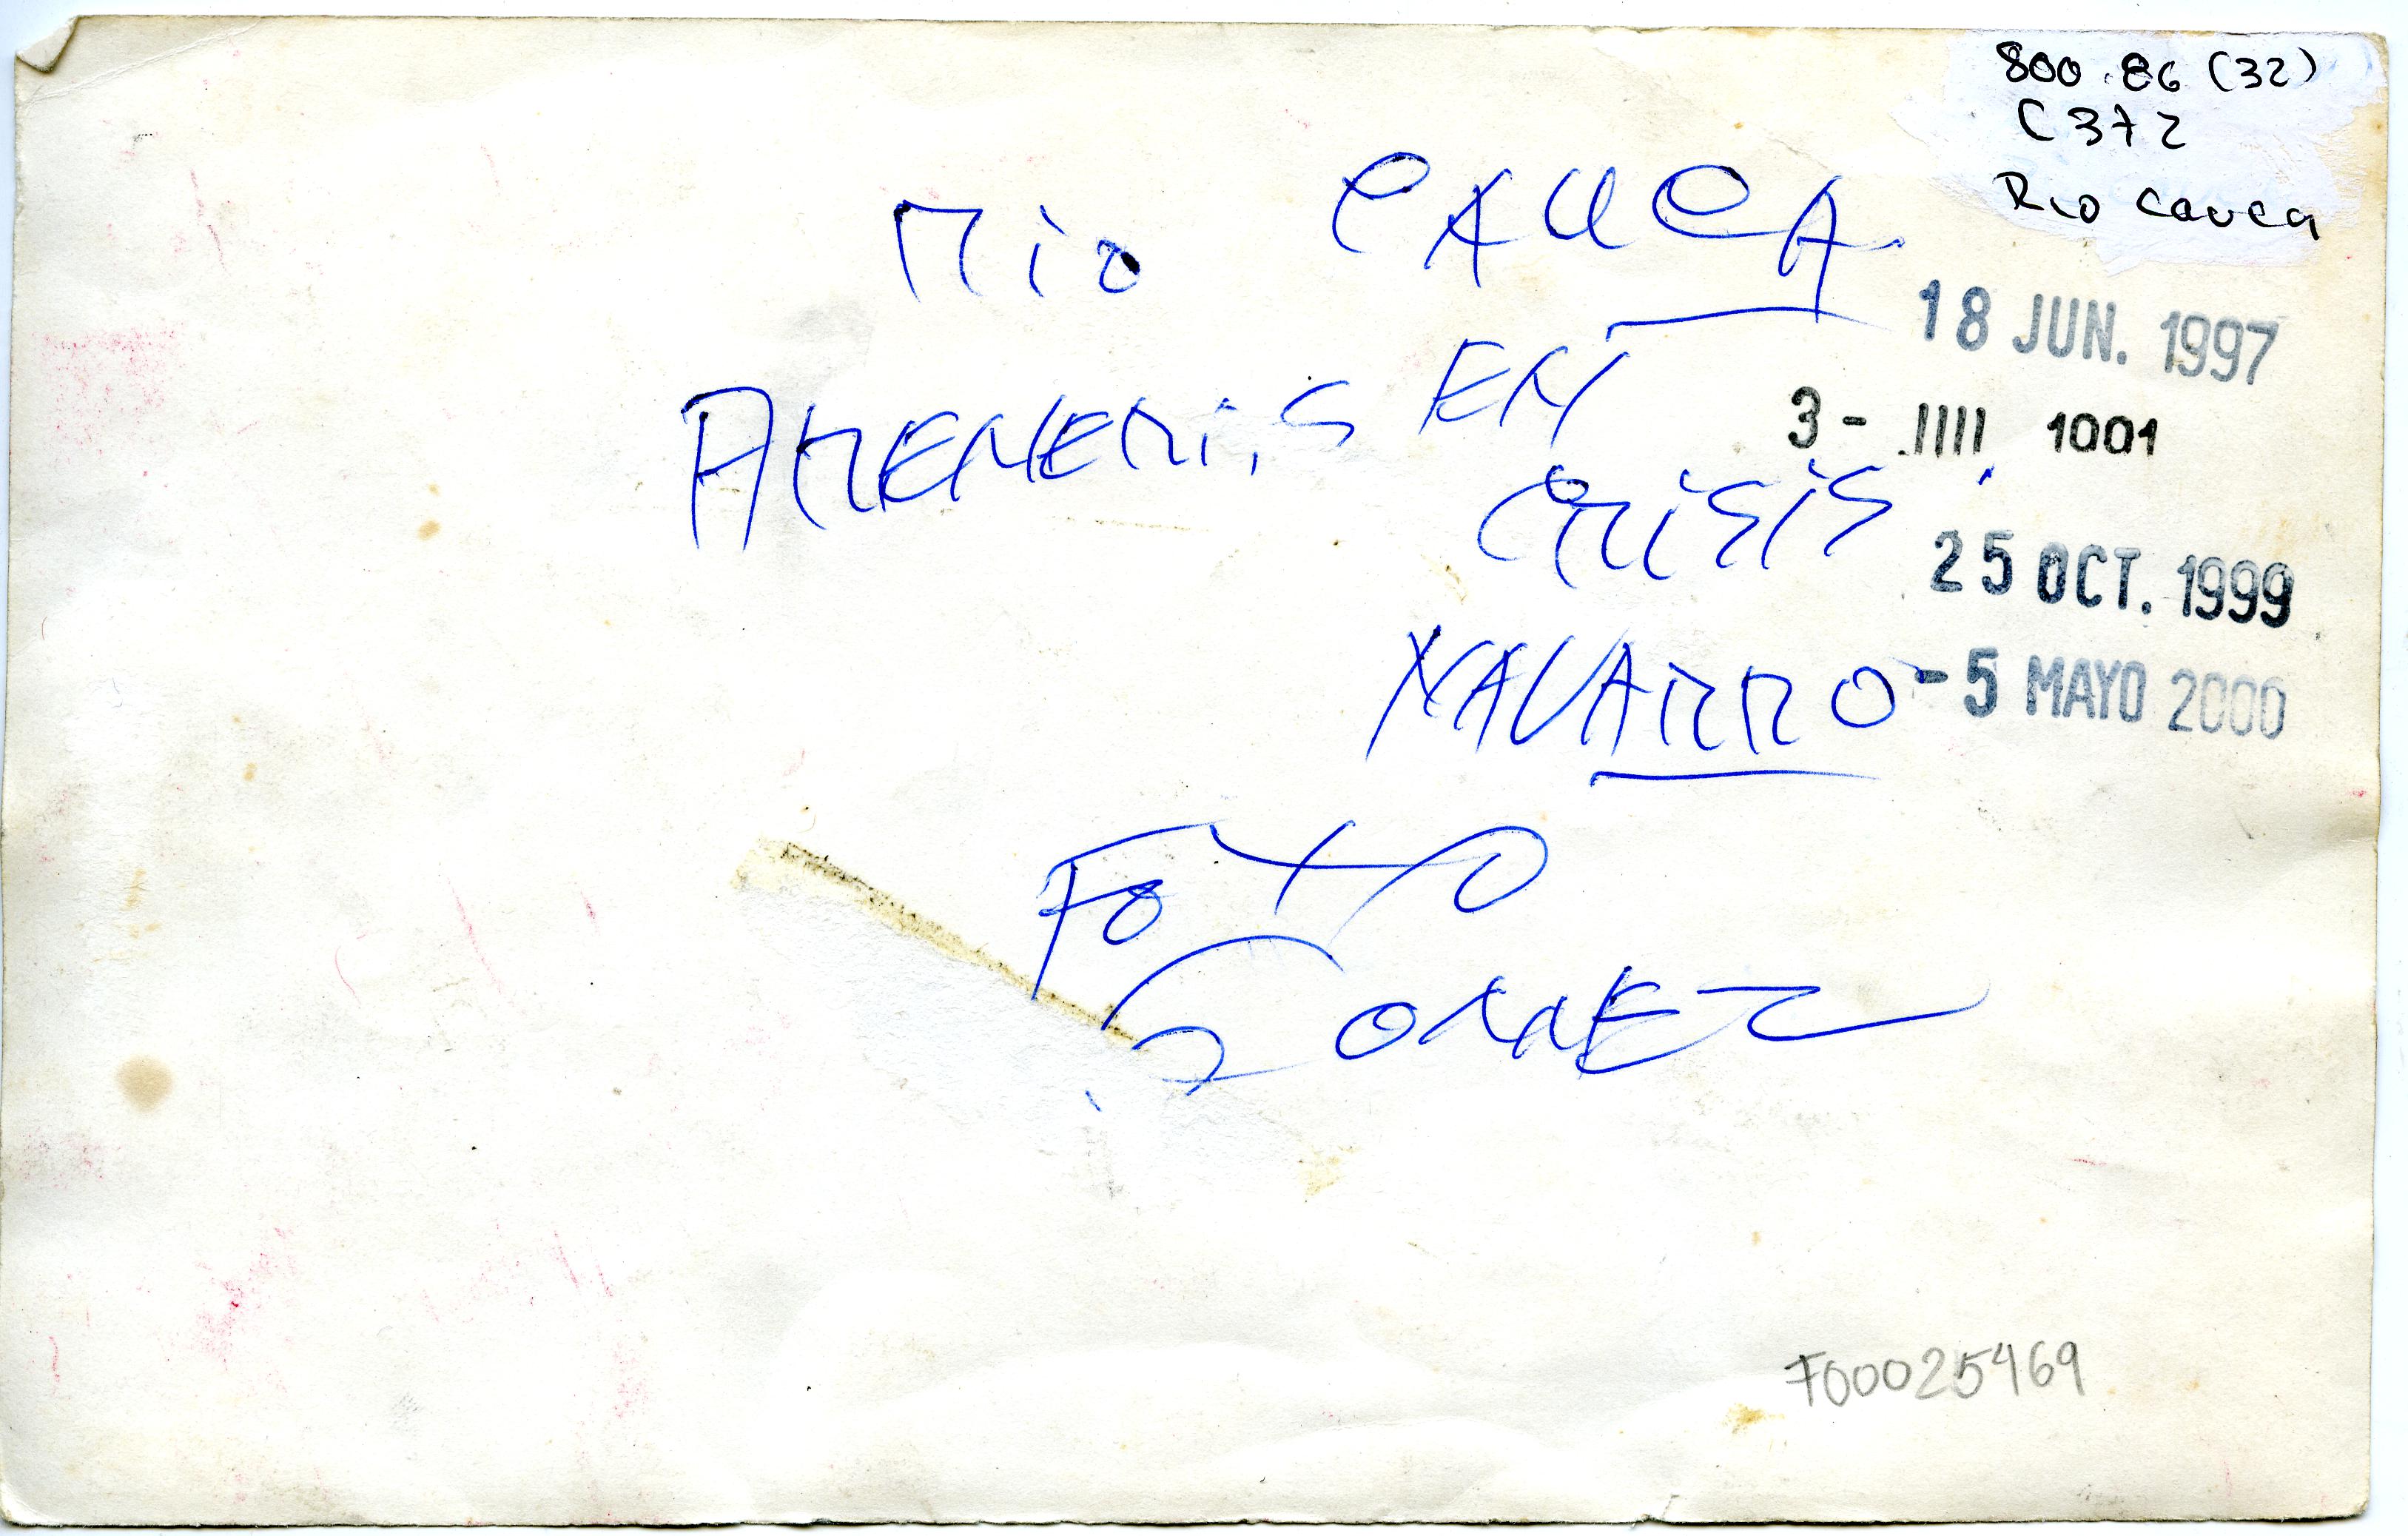 800.86 (32)
C372
Rio Cauca
RiO CAUCA
18 JUN. 1997
ARENEROS EN
3 -
CRISIS
25 OCT. 1999
NAVARRO
- 5 MAYO 2000
FOTO
GOMEZ
F00025469